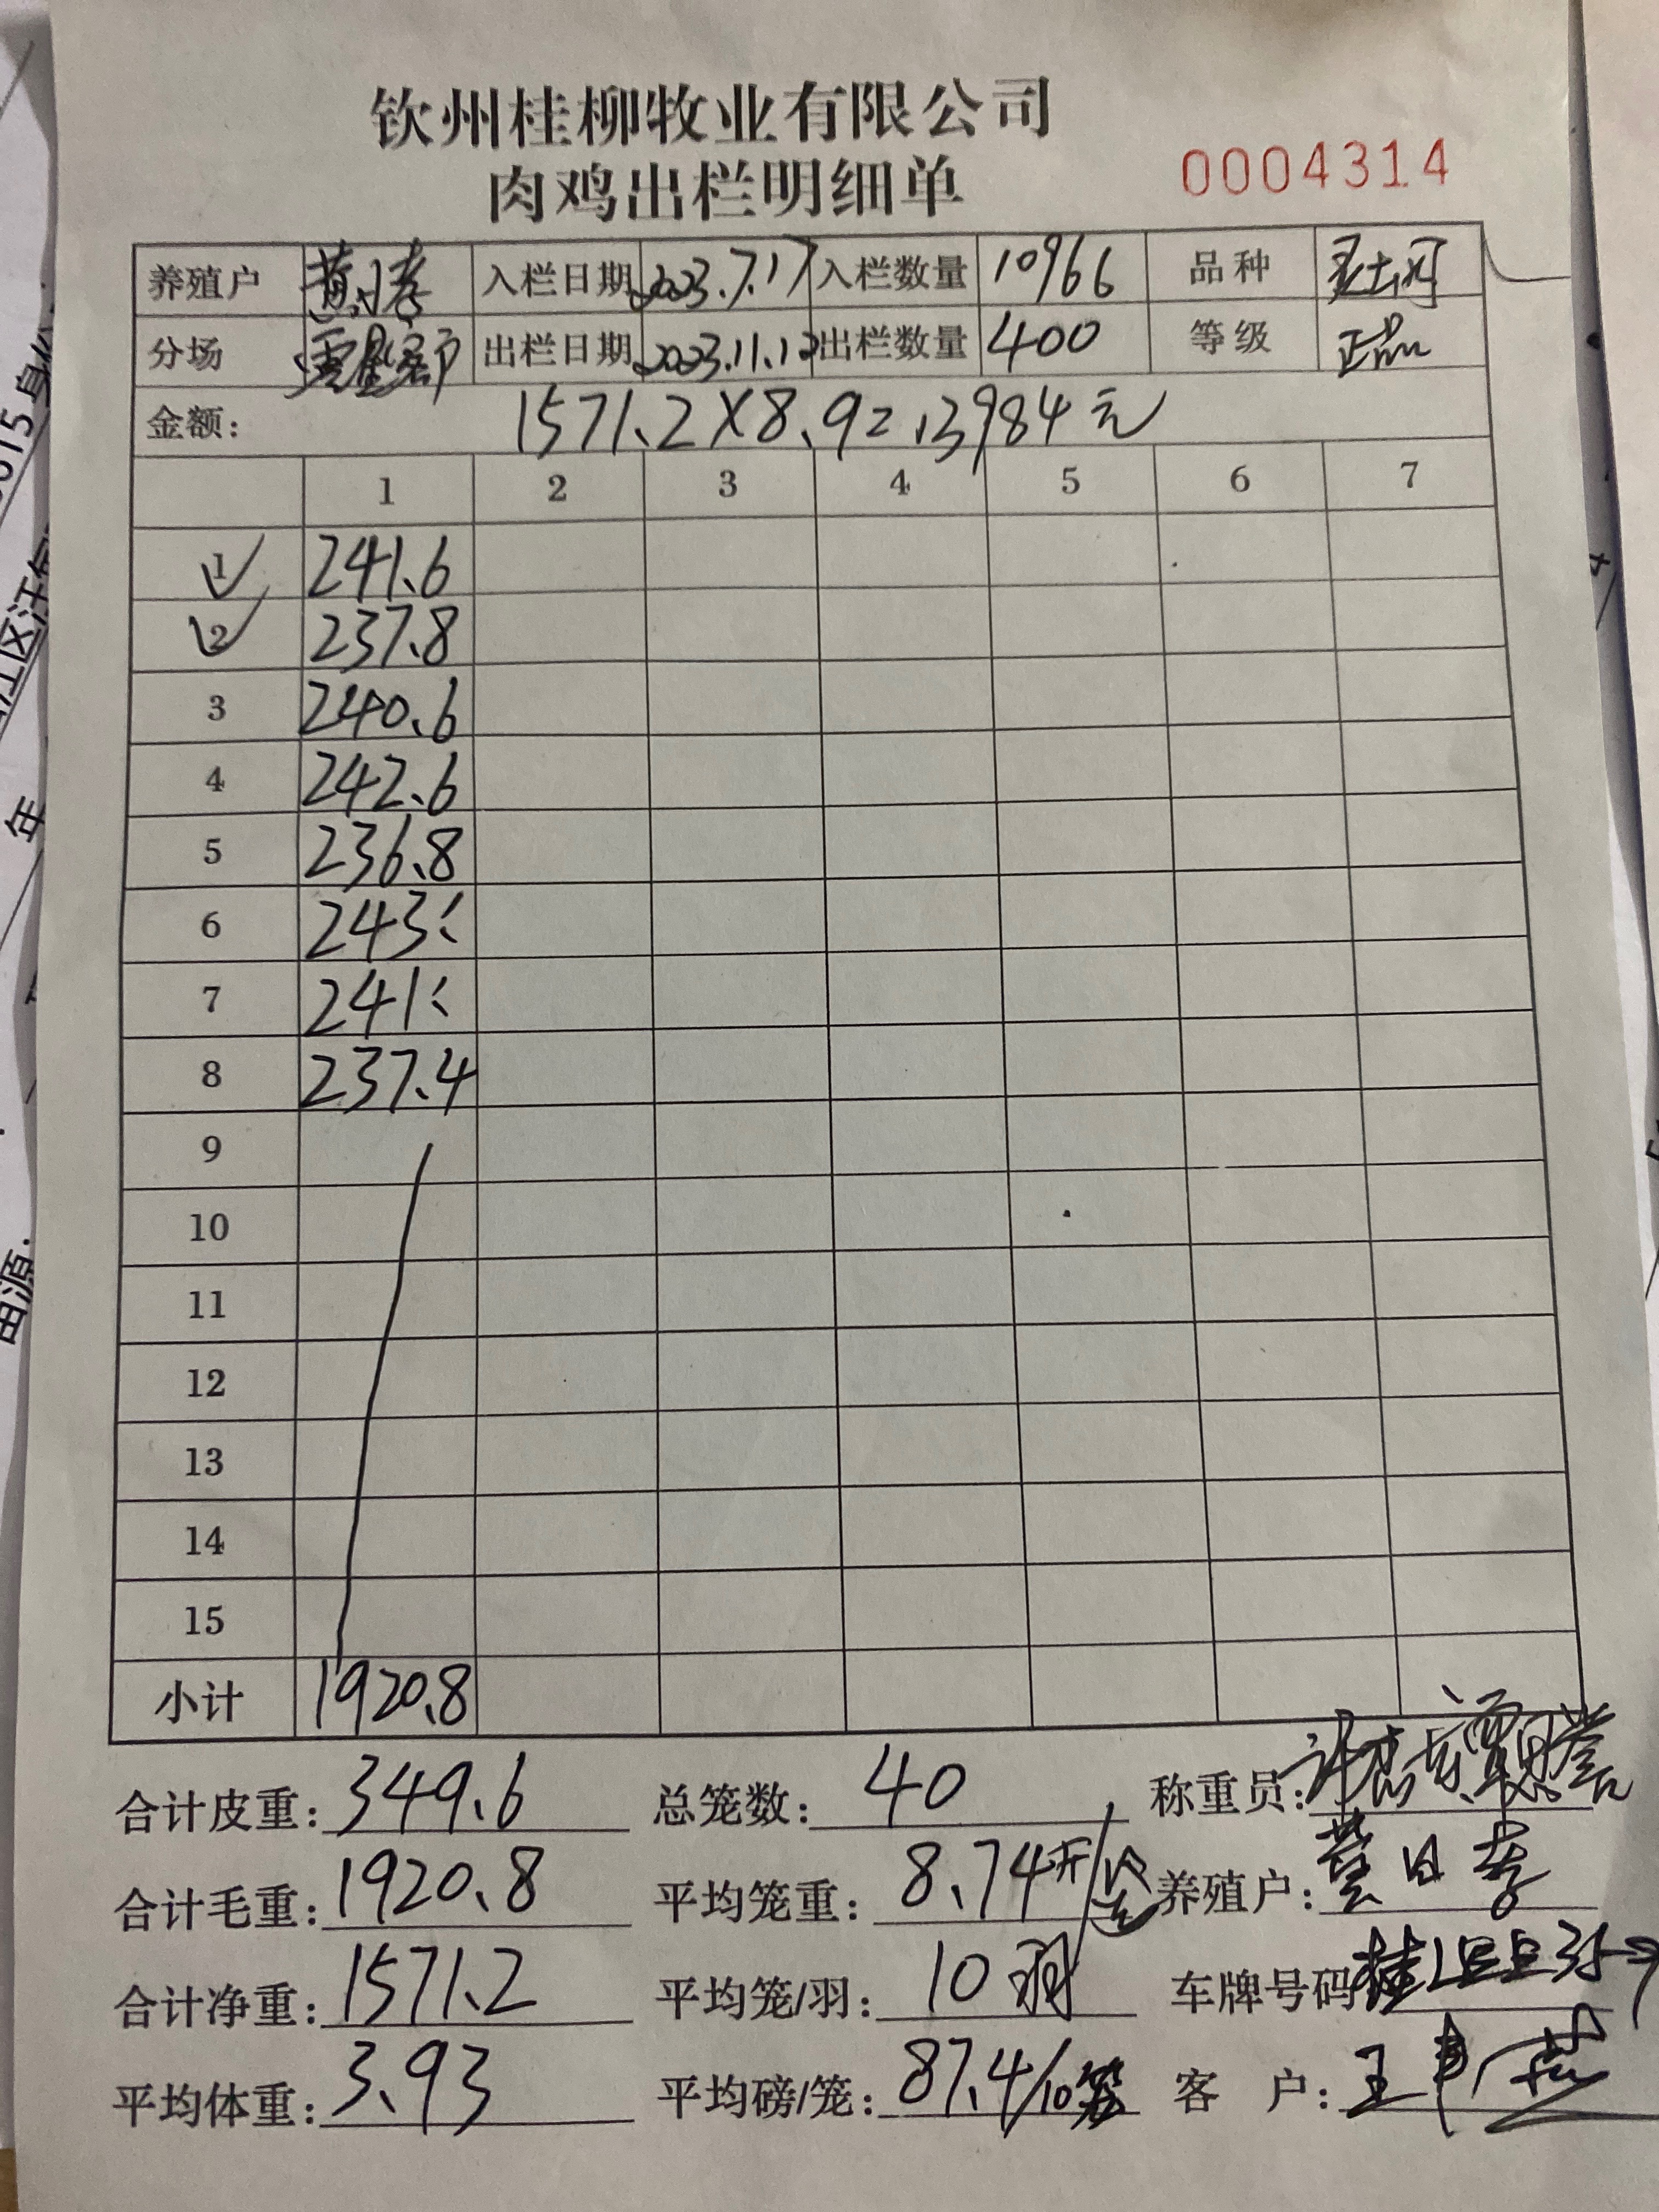 钦州桂柳牧业有限公司
肉鸡出栏明细单 0004314
养殖户 入栏日期 2023.7.17 入栏数量 10966 品种
分场 出栏日期 2023.11.12 出栏数量 400 等级 正品
金额: 1571.2×8.9=13984元
1 2 3 4 5 6 7
1 241.6
2 237.8
3 240.6
4 242.6
5 236.8
6 243
7 241
8 237.4
9
10
11
12
13
14
15
小计 1920.8
合计皮重: 349.6 总笼数: 40 称重员:
合计毛重: 1920.8 平均笼重: 8.74斤/笼 养殖户:
合计净重: 1571.2 平均笼/羽: 10羽 车牌号码
平均体重: 3.93 平均磅/笼: 87.4/10笼 客户: 王
年